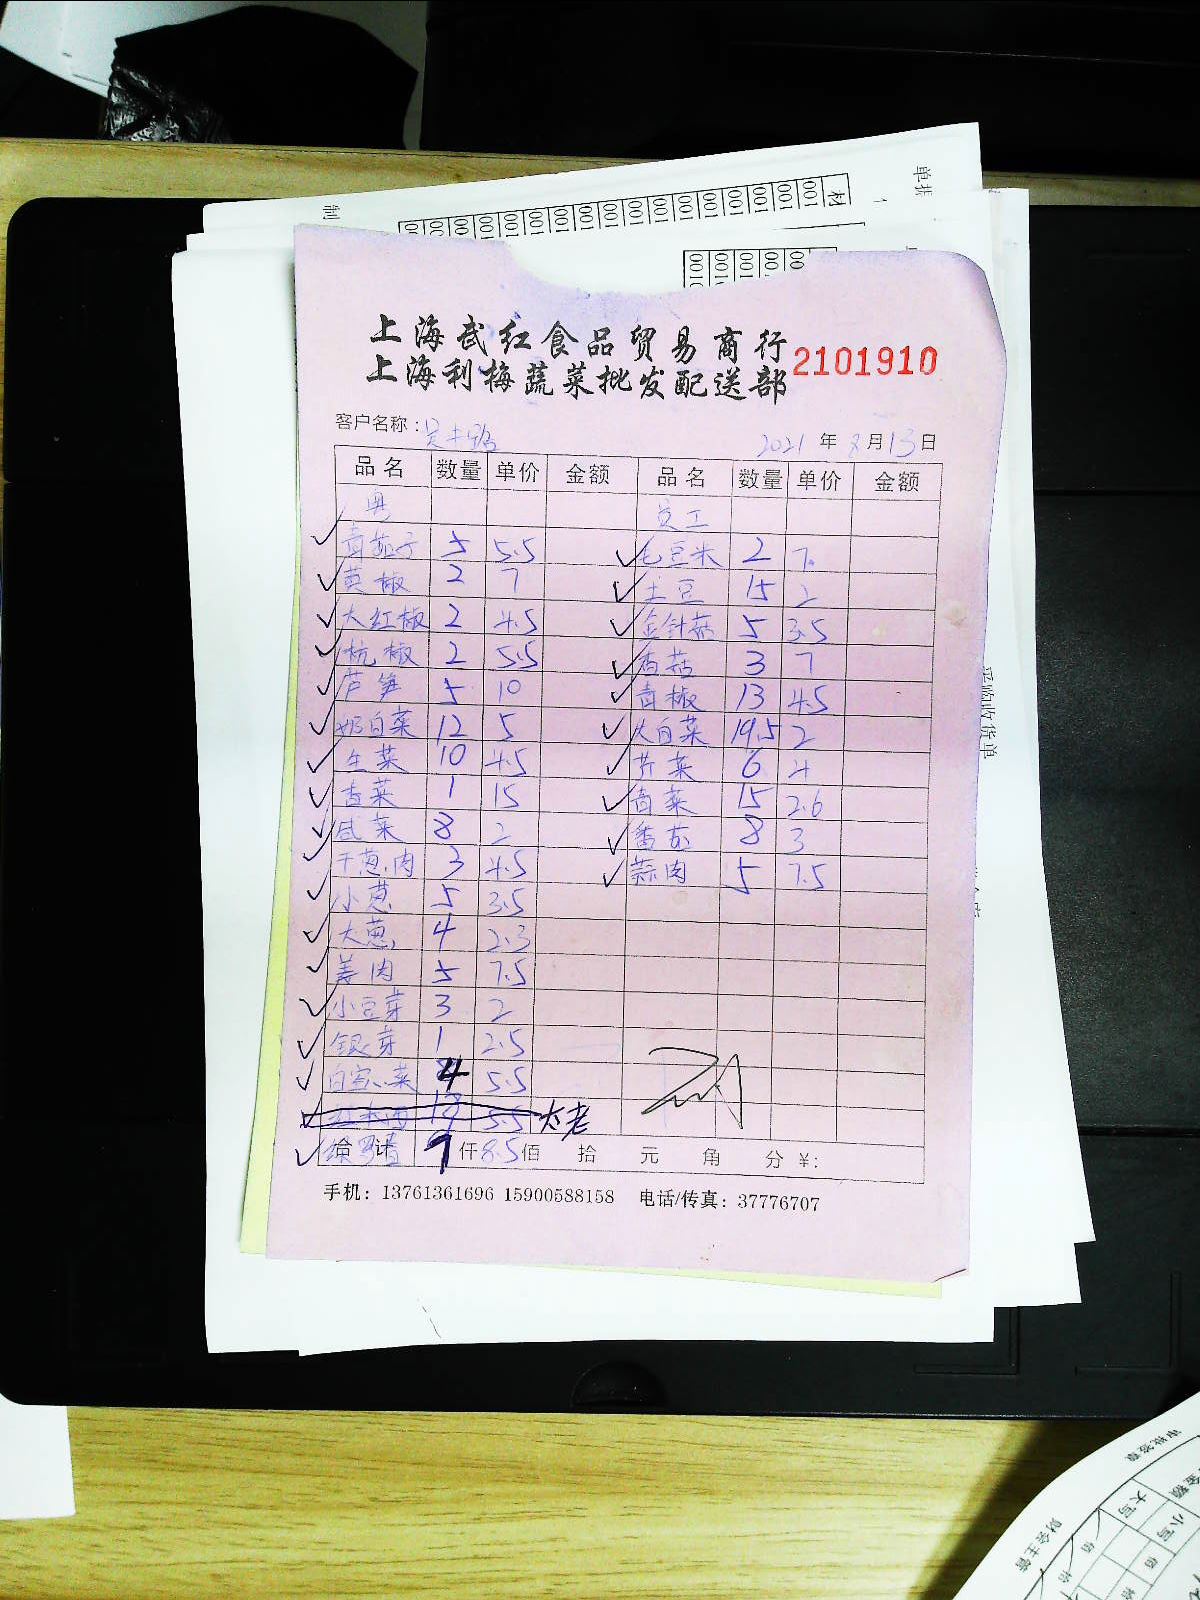 上海武红食品贸易商行
上海利梅蔬菜批发配送部
2101910
客户名称：
2021 年 8 月 13 日
品名 数量 单价 金额 品名 数量 单价 金额
粤 员工
青茄子 5 5.5 毛豆米 2 7.
黄椒 2 7 土豆 15 2
大红椒 2 4.5 金针菇 5 3.5
杭椒 2 5.5 香菇 3 7
芦笋 5 10 青椒 13 4.5
奶白菜 12 5 大白菜 19.5 2
生菜 10 4.5 芹菜 6 4
香菜 1 15 青菜 15 2.6
咸菜 8 2 番茄 8 3
干葱肉 3 4.5 蒜肉 5 7.5
小葱 5 3.5
大葱 4 2.3
姜肉 5 7.5
小豆芽 3 2
银芽 1 2.5
菜 4 5.5
5.5 太老
合计 仟 8.5 佰 拾 元 角 分 ¥:
手机：13761361696 15900588158 电话/传真：37776707
采购收货单
单据
制
材
001
大写
小写
金额
财会主管